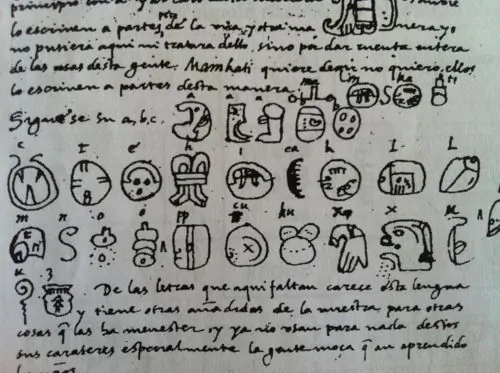 principio con a
lo escriven a partes de la una, y otra ma nera, yo
no pusiera aqui ni tratara dello, sino por dar cuenta entera
de las cosas desta gente. Mainkati quiere dezir no quiero, ellos
lo escriven a partes desta manera. ma i n ka ti
Siguese su a, b, c. a a
c T e h i ca k L L
m n o o pp cu ku x x u
u z De las letras que aqui faltan carece esta lengua
y tiene otras añadidas de la nuestra para otras
cosas q̃ las ha menester, y ya no usan para nada destos
sus carateres especialmente la gente moça q̃ an aprendido